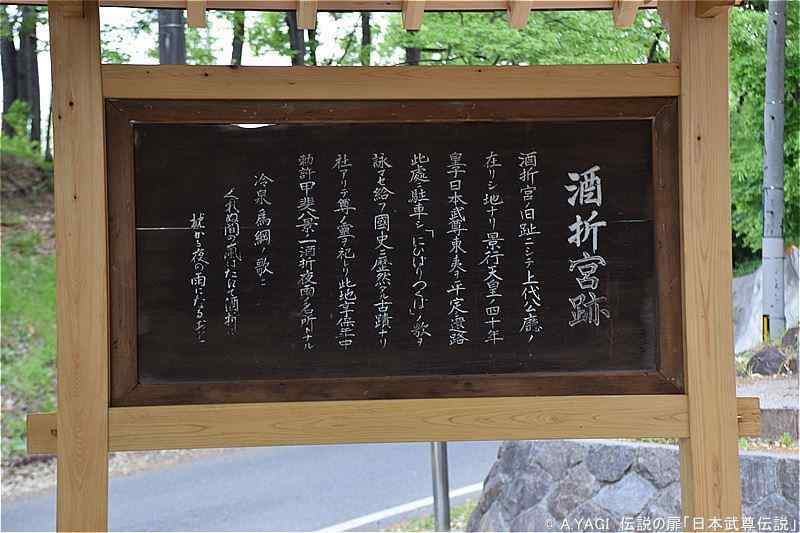 酒折宮跡
酒折宮ノ旧趾ニシテ上代公廳ノ
在リシ地ナリ景行天皇ノ四十年
皇子日本武尊東夷ヲ平定還路
此處ニ駐車シ「にひばりつくば」ノ歌ヲ
詠マセ給フ國史ニ歴然タル古蹟ナリ
社アリテ尊ノ霊ヲ祀レリ此地享保年中
勅許甲斐八景ノ一酒折夜雨ノ名所ナル
冷泉爲綱ノ歌ニ
くれぬ間の風はたえし酒折に
夜の雨になるおと
© A.YAGI 伝説の扉「日本武尊伝説」